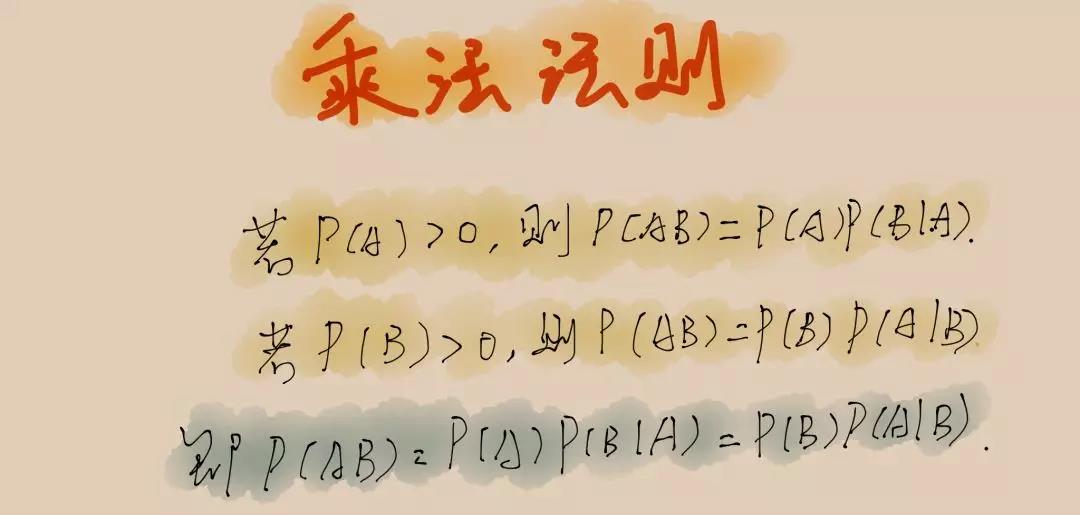 乘法法则
若 P(A)>0, 则 P(AB)=P(A)P(B|A).
若 P(B)>0, 则 P(AB)=P(B)P(A|B).
即 P(AB)=P(A)P(B|A)=P(B)P(A|B).